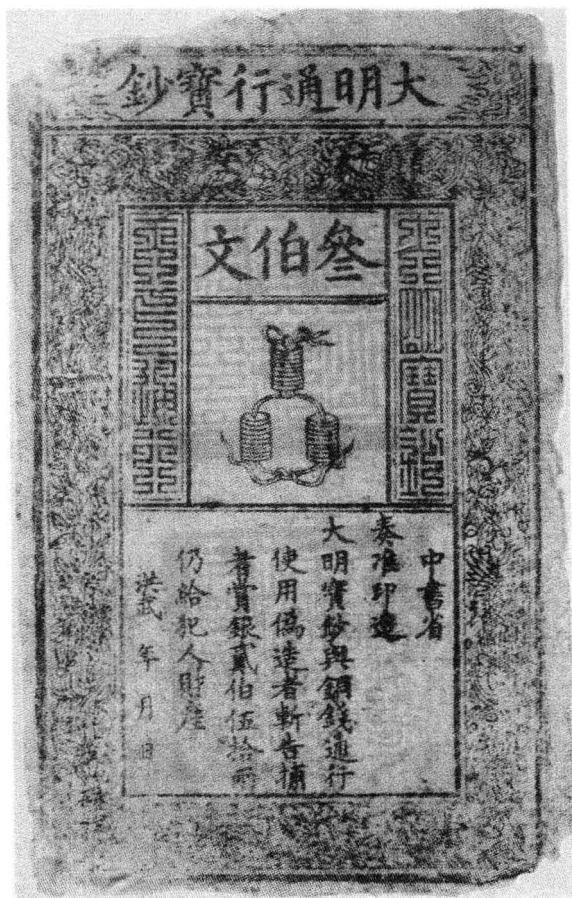 大明通行寶鈔
叄伯文
大明寶鈔
天下通行
中書省
奏准印造
大明寶鈔與銅錢通行
使用偽造者斬告捕
者賞銀貳伯伍拾兩
仍給犯人財產
洪武 年 月 日